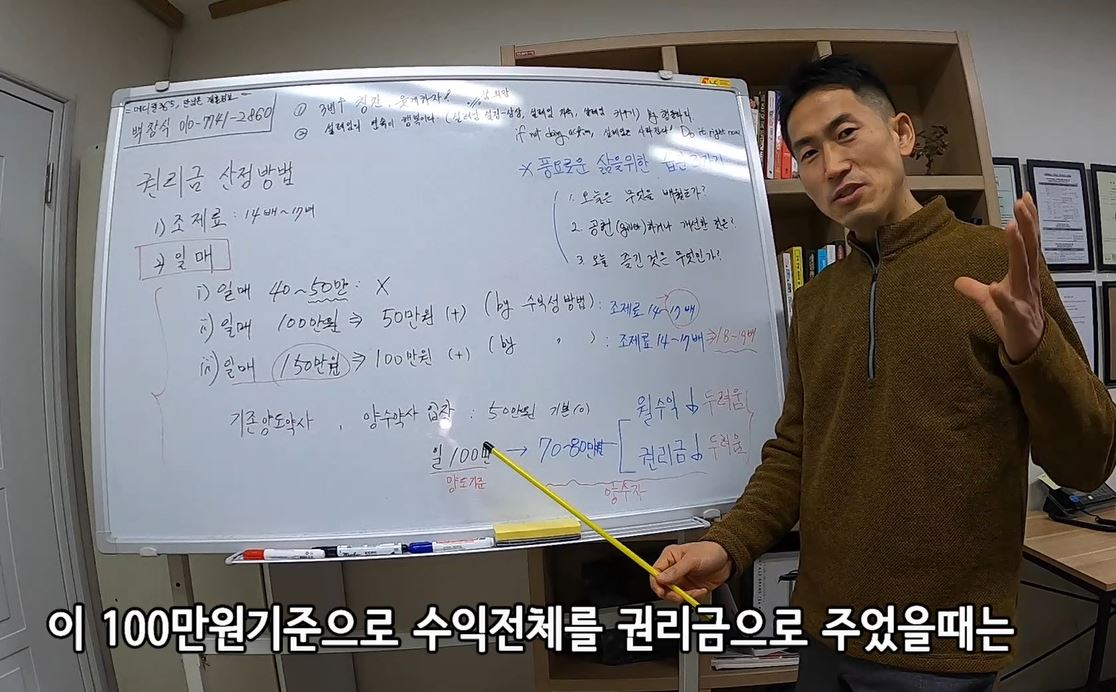 백창식 010-7741-2860
권리금 산정방법
1) 조제료 : 14배~17배
2) 일매
i) 일매 40~50만 : X
ii) 일매 100만원 ⇒ 50만원 (+) (by 수익성방법) : 조제료 14~17배
iii) 일매 150만원 ⇒ 100만원 (+) (by 〃 ) : 조제료 14~17배 ⇒ 18~19배
기존양도약사 , 양수약사 입장 : 50만원 기본(0)
일 100만 → 70~80만원
양도기준
양수자
월수익 ↓ 두려움
권리금 ↓ 두려움
① 3번
Do it right now
※ 풍요로운 삶을위한 습관 3가지
1. 오늘은 무엇을 배웠는가?
2. 공헌(give)하거나 개선한 것은?
3. 오늘 즐긴 것은 무엇인가?
이 100만원기준으로 수익전체를 권리금으로 주었을때는